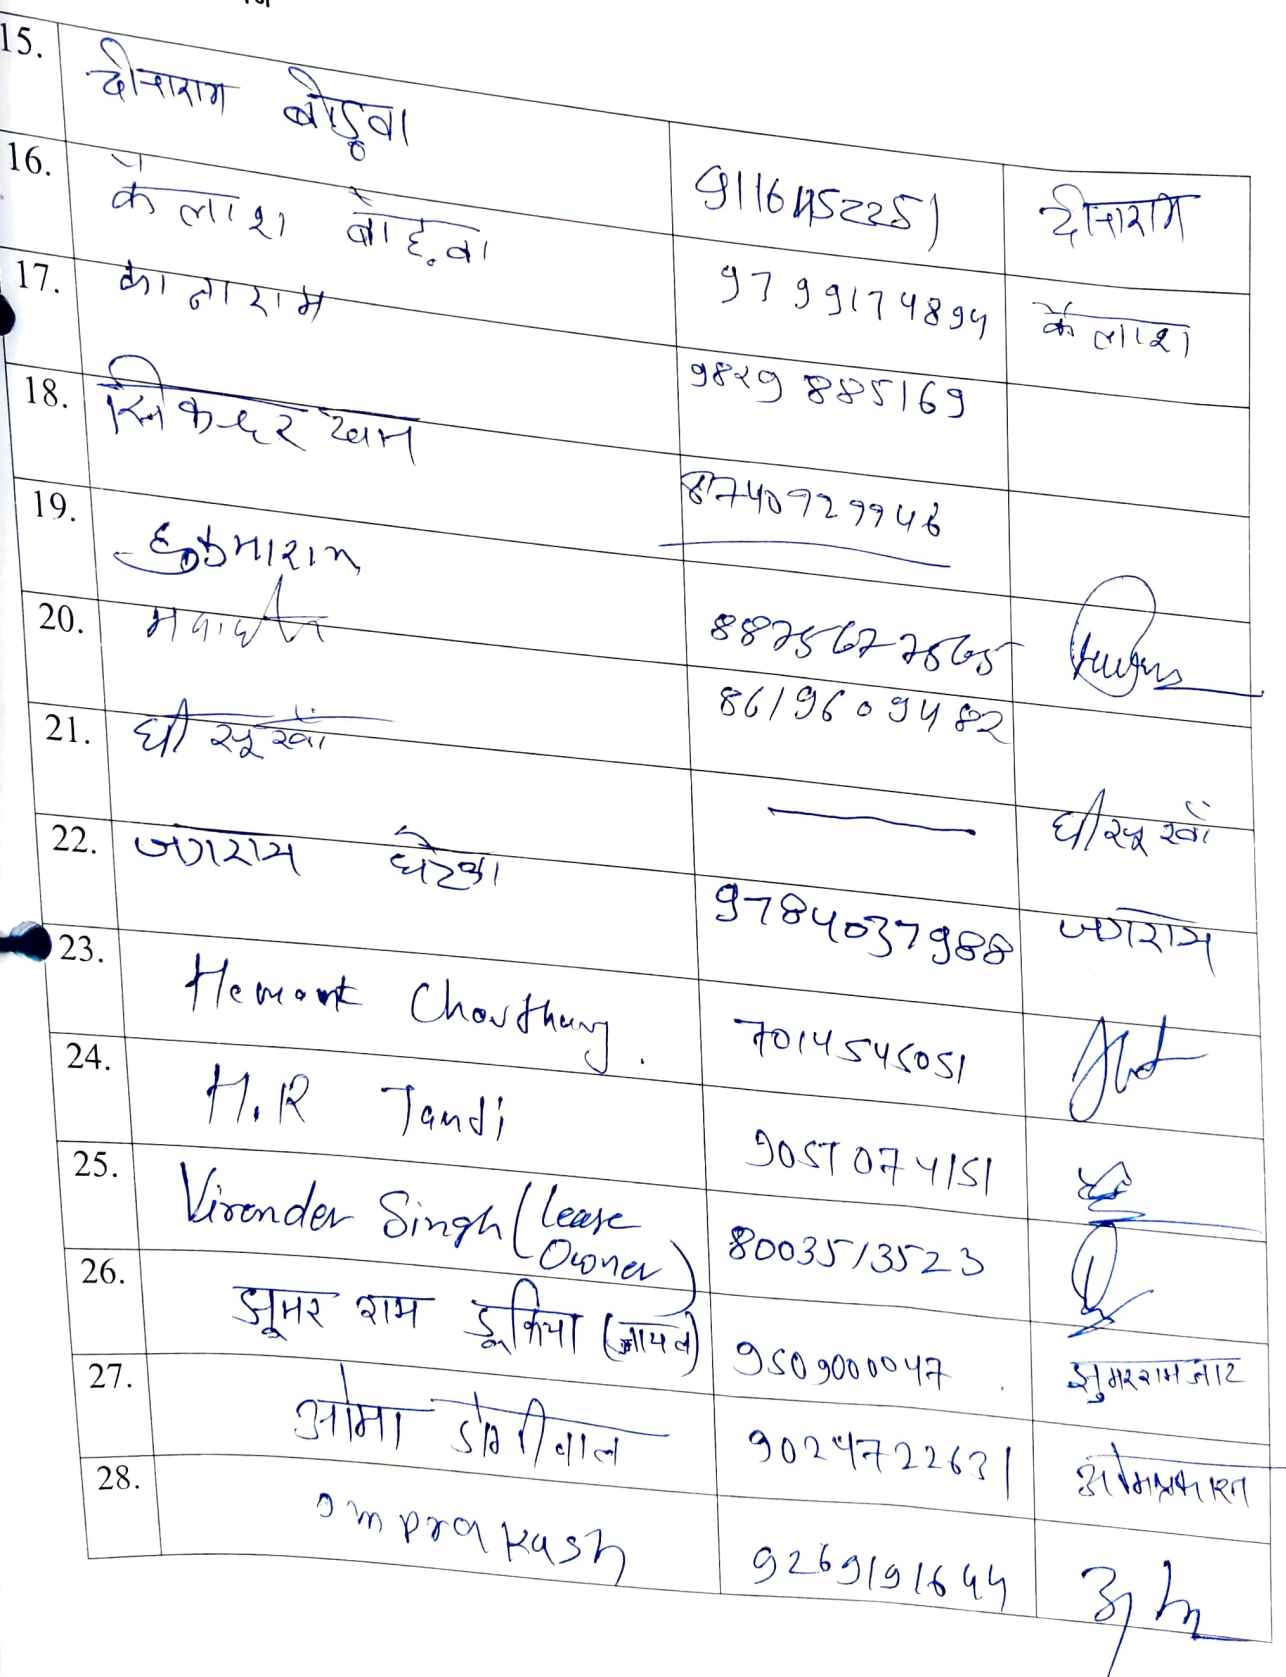 15. दीनाराम बोहरवा 9116452251 दीनाराम
16. कैलाश 9799174894 कैलाश
17. कानाराम 9829885169
18. सिकन्दर खान 8740929946
19. हुकमाराम
20. 8619609482
21. घीसू खाँ — घीसू खाँ
22. जगराम घेटका 9784037988 जगराम
23. Hemant Chowdhary. 7014545051
24. H.R Jandi 9057074151
25. Virender Singh (Lease Owner) 8003513523
26. झूमर राम डूकिया (नायब) 9509000047 झुमरराम जाट
27. ओमा 9024722631 ओमप्रकाश
28. omprakash 9269191644